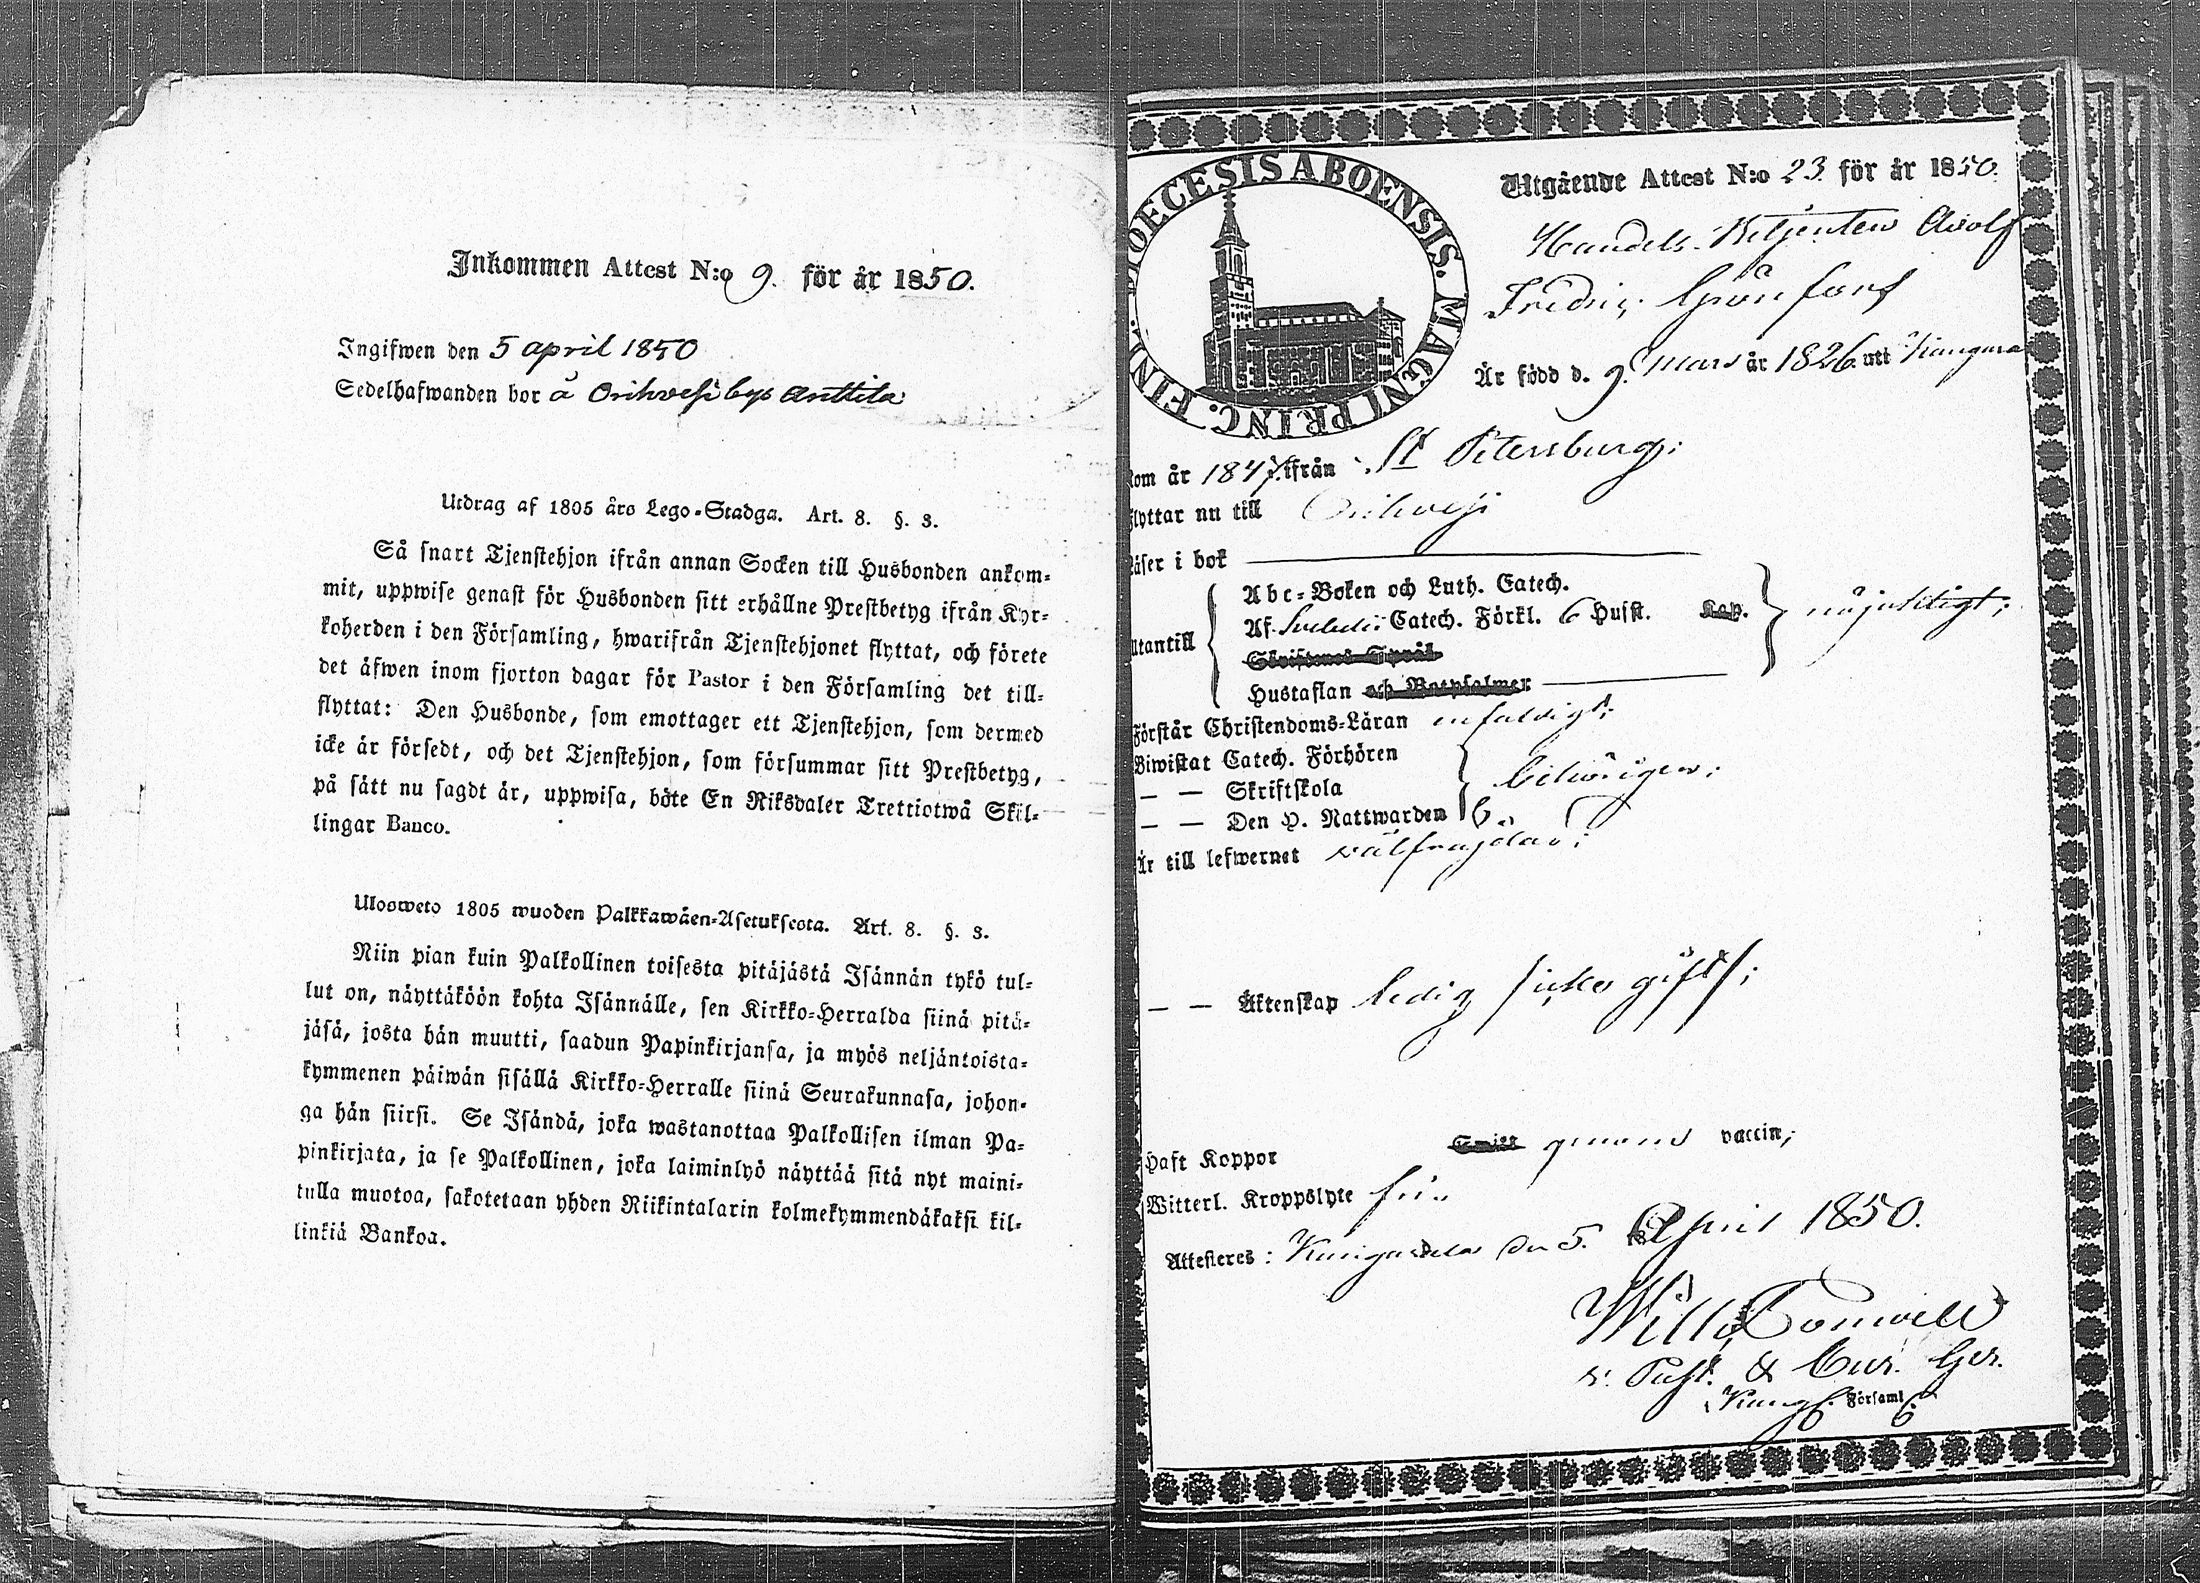 Inkommen Attest N:o 9. för år 1850.
Ingifwen den 5 april 1850
Sedelhafwanden bor å Orihvesi bys Anttila
Utdrag af 1805 års Lego-Stadga. Art. 8. §. 3.
Så snart Tjenstehjon ifrån annan Socken till Husbonden ankom-
mit, uppwise genast för Husbonden sitt erhållne Prestbetyg ifrån Kyr-
koherden i den Församling, hwarifrån Tjenstehjonet flyttat, och förete
det äfwen inom fjorton dagar för Pastor i den Församling det till-
flyttat: Den Husbonde, som emottager ett Tjenstehjon, som dermed
icke är försedt, och det Tjenstehjon, som försummar sitt Prestbetyg,
på sätt nu sagdt är, uppwisa, böte En Riksdaler Trettiotwå Skil-
lingar Banco.
Ulosweto 1805 wuoden Palkkawäen-Asetuksesta. Art. 8. §. 3.
Niin pian kuin Palkollinen toisesta pitäjästä Isännän tykö tul-
lut on, näyttäköön kohta Isännälle, sen Kirkko-Herralda siinä pitä-
jäsä, josta hän muutti, saadun Papinkirjansa, ja myös neljäntoista-
kymmenen päiwän sisällä Kirkko-Herralle siinä Seurakunnasa, johon-
ga hän siirsi. Se Isändä, joka wastanottaa Palkollisen ilman Pa-
pinkirjata, ja se Palkollinen, joka laiminlyö näyttää sitä nyt maini-
tulla muotoa, sakotetaan yhden Riikintalarin kolmekymmendäkaksi kil-
linkiä Bankoa.
DIOECESIS ABOENSIS. MAGNI PRINC. FINL.
Utgående Attest N:o 23. för år 1850.
Handels-Betjenten Adolf
Fredric Grönfors
Är född d. 9. mars år 1826. uti Kangasa
kom år 1847. ifrån St Petersburg;
flyttar nu till Orihvesi
läser i bok
Abc-Boken och Luth. Catech.
Af Svebelii Catech. Förkl. 6 Husst. Kap.
utantill nöjaktigt;
Skriftenes Språk
Hustaflan och Botpsalmer
Förstår Christendoms-Läran enfaldigt;
Biwistat Catech. Förhören
— — Skriftskola behörigen;
— — Den H. Nattwarden
Är till lefwernet välfrejdad;
— — Äktenskap ledig /icke gift/;
Haft Koppor genom vaccin;
Witterl. Kroppslyte fri.
Attesteres: Kangasala den 5. April 1850.
Wilh.
v. Past. & Cur. Ger.
i Kangs. Församl.